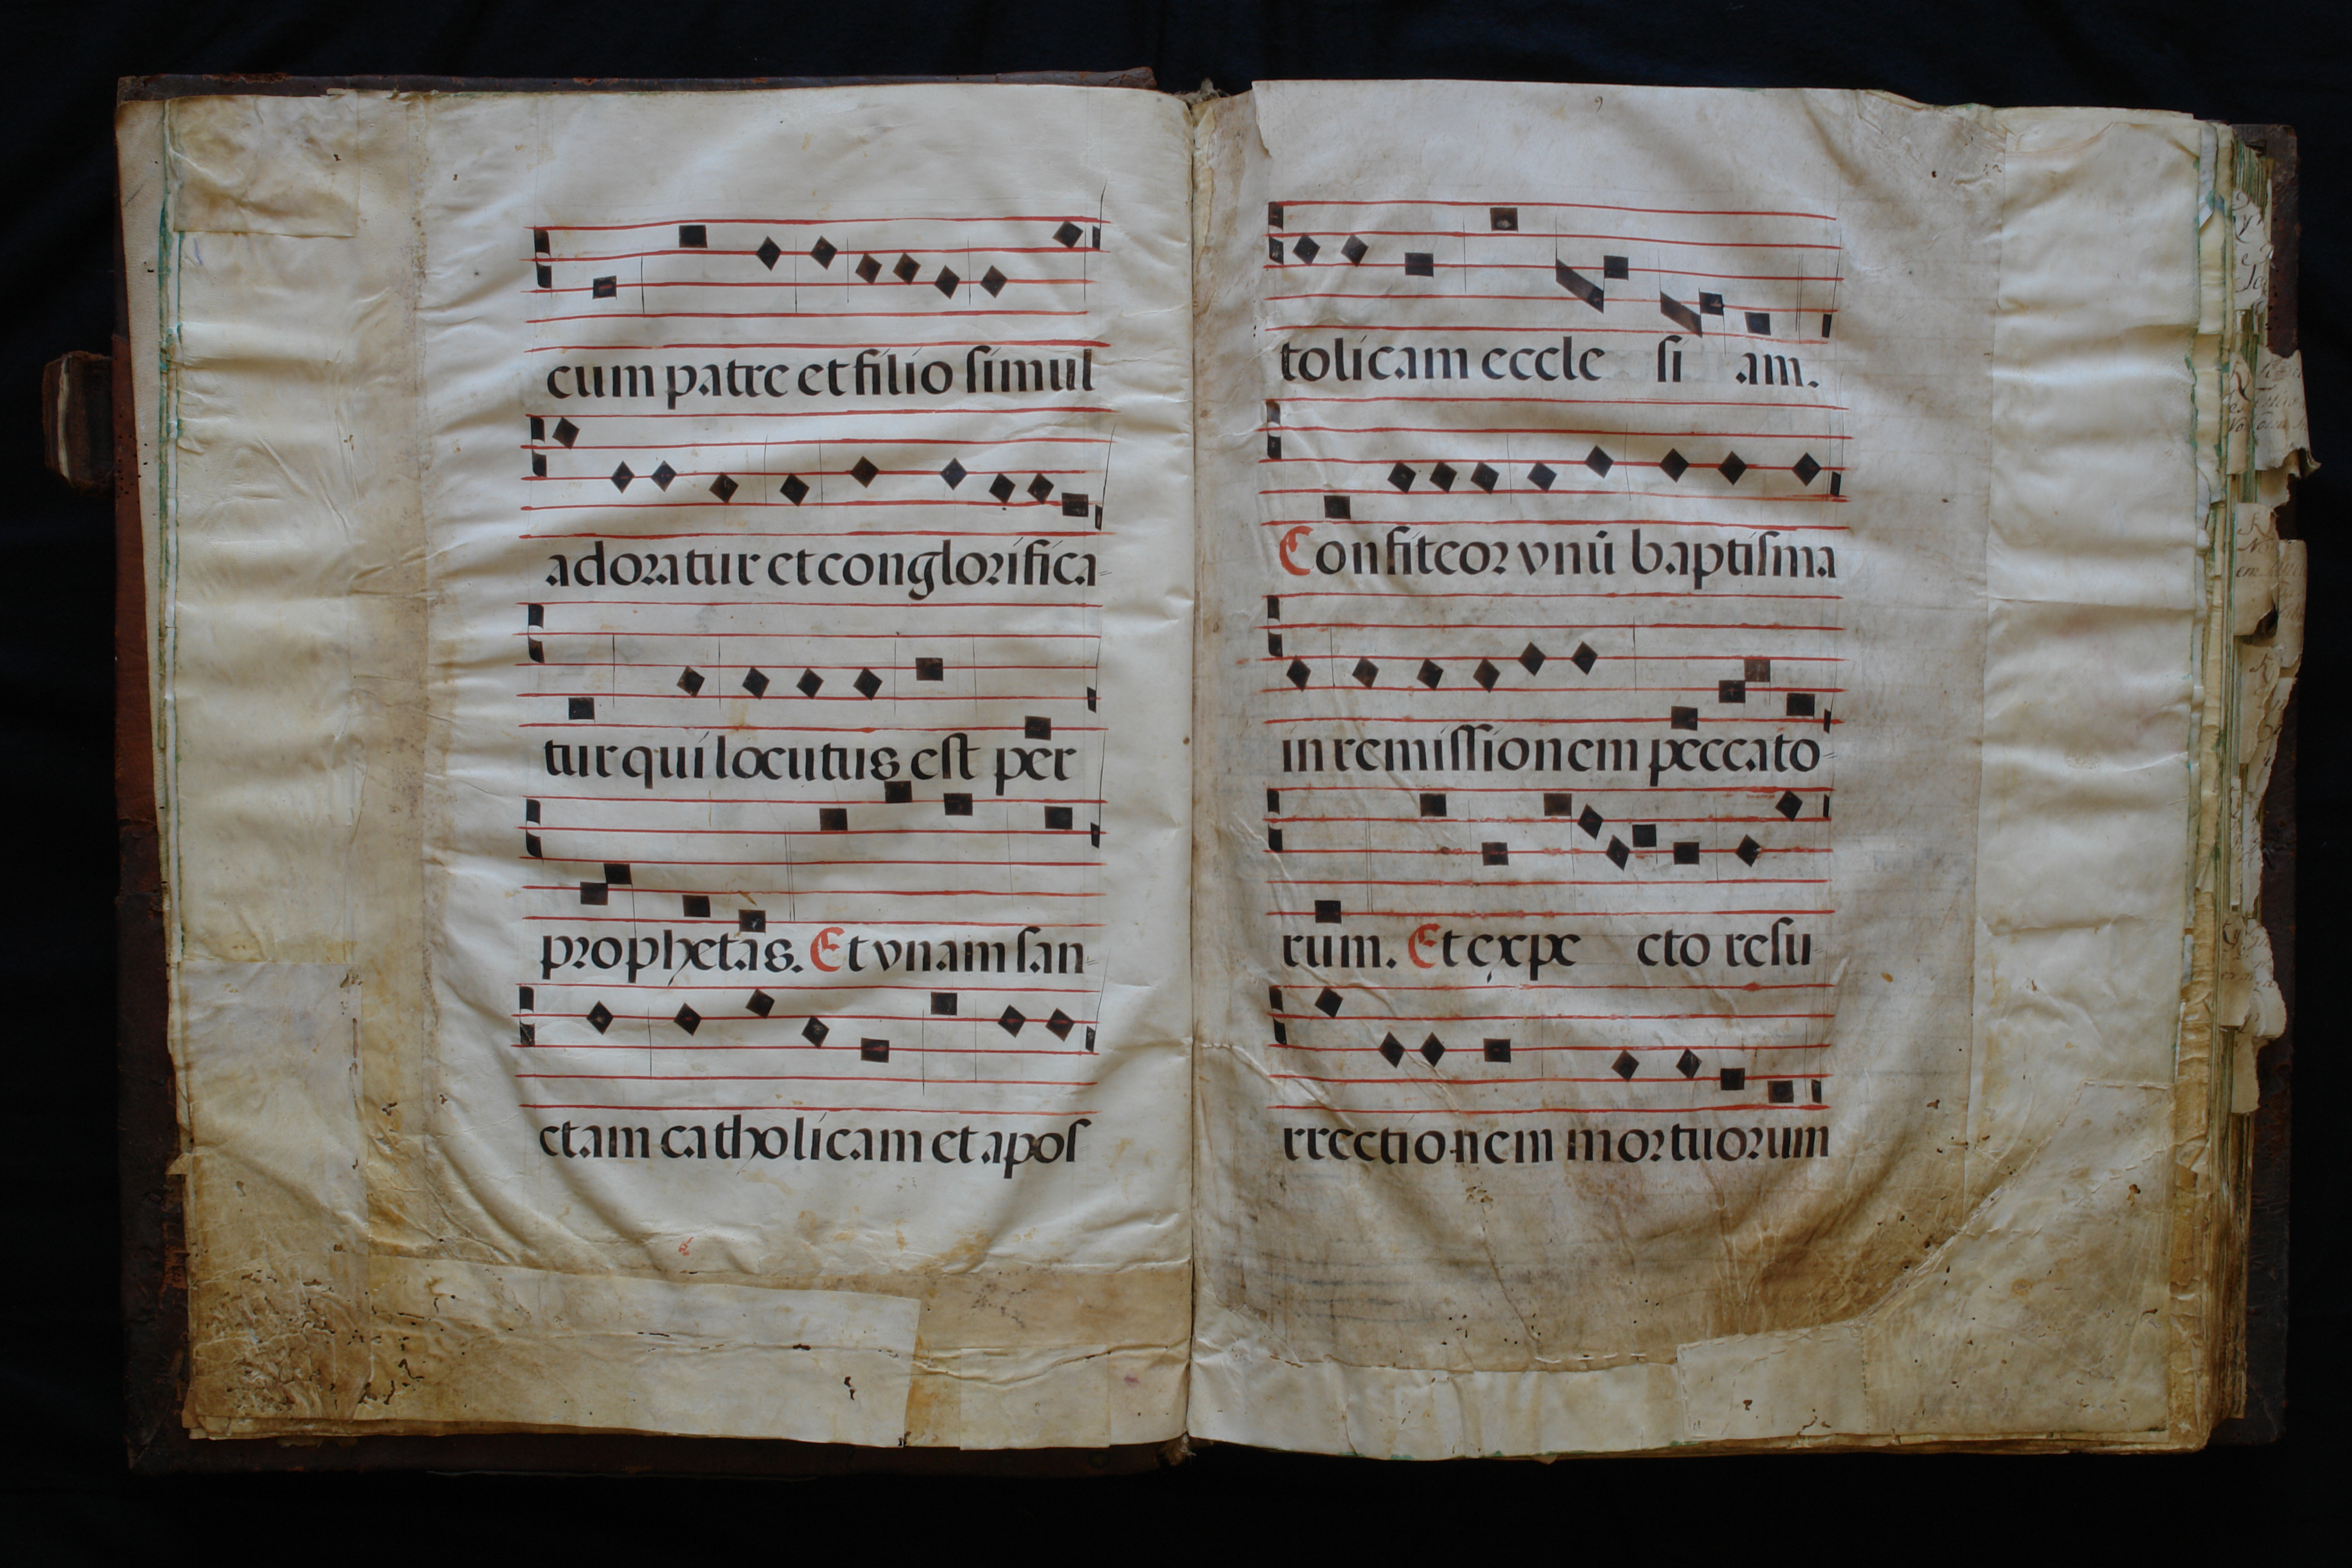 cum patre et filio simul
adoratur et conglorifica-
tur qui locutus est per
prophetas. Et vnam san-
ctam catholicam et apos
9
tolicam eccle si am.
Confiteor vnū baptisma
in remissionem peccato-
rum. Et expe cto resu-
rrectionem mortuorum